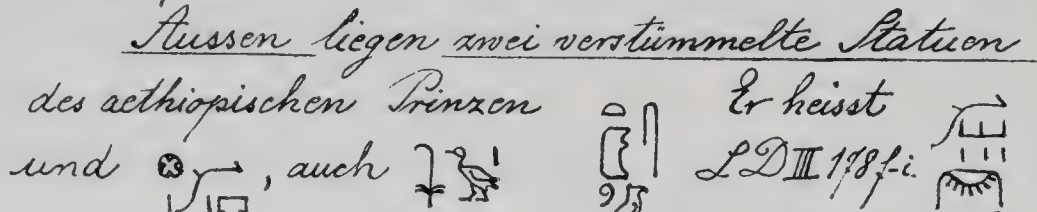 Aussen liegen zwei verstümmelte Statuen
des aethiopischen Prinzen Er heisst
und , auch LD III 178 f-i.